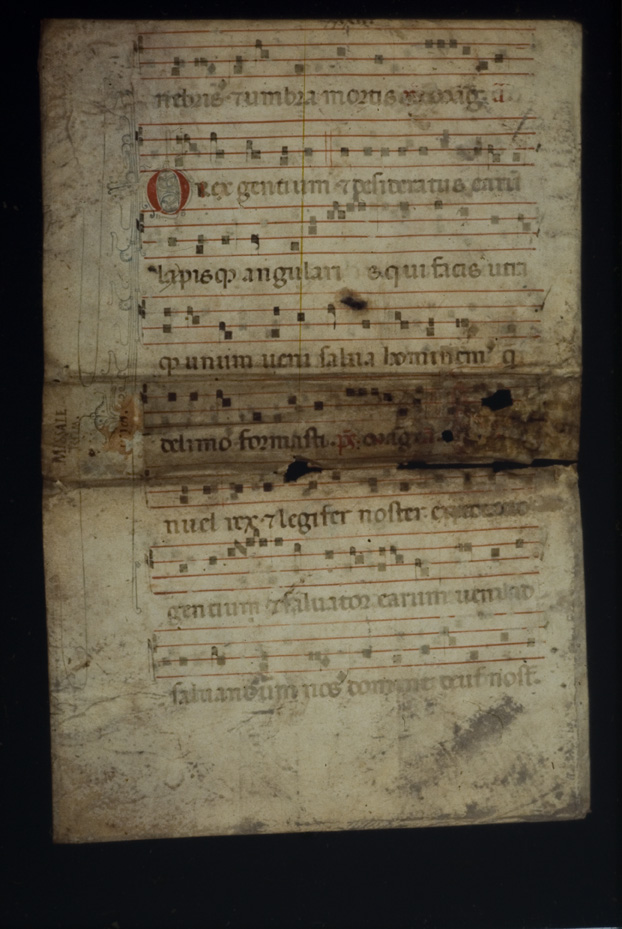 nebris ⁊ umbra mortis
O rex gentium ⁊ desideratus earū
lapisqꝫ angulari s qui facis utra
qꝫ unum ueni salua hominem q
de limo formasti. p̄s.
nuel rex ⁊ legifer noster
gentium ⁊ saluator earum ueni ad
saluandum nos domine deus nost̄.
MISSALE